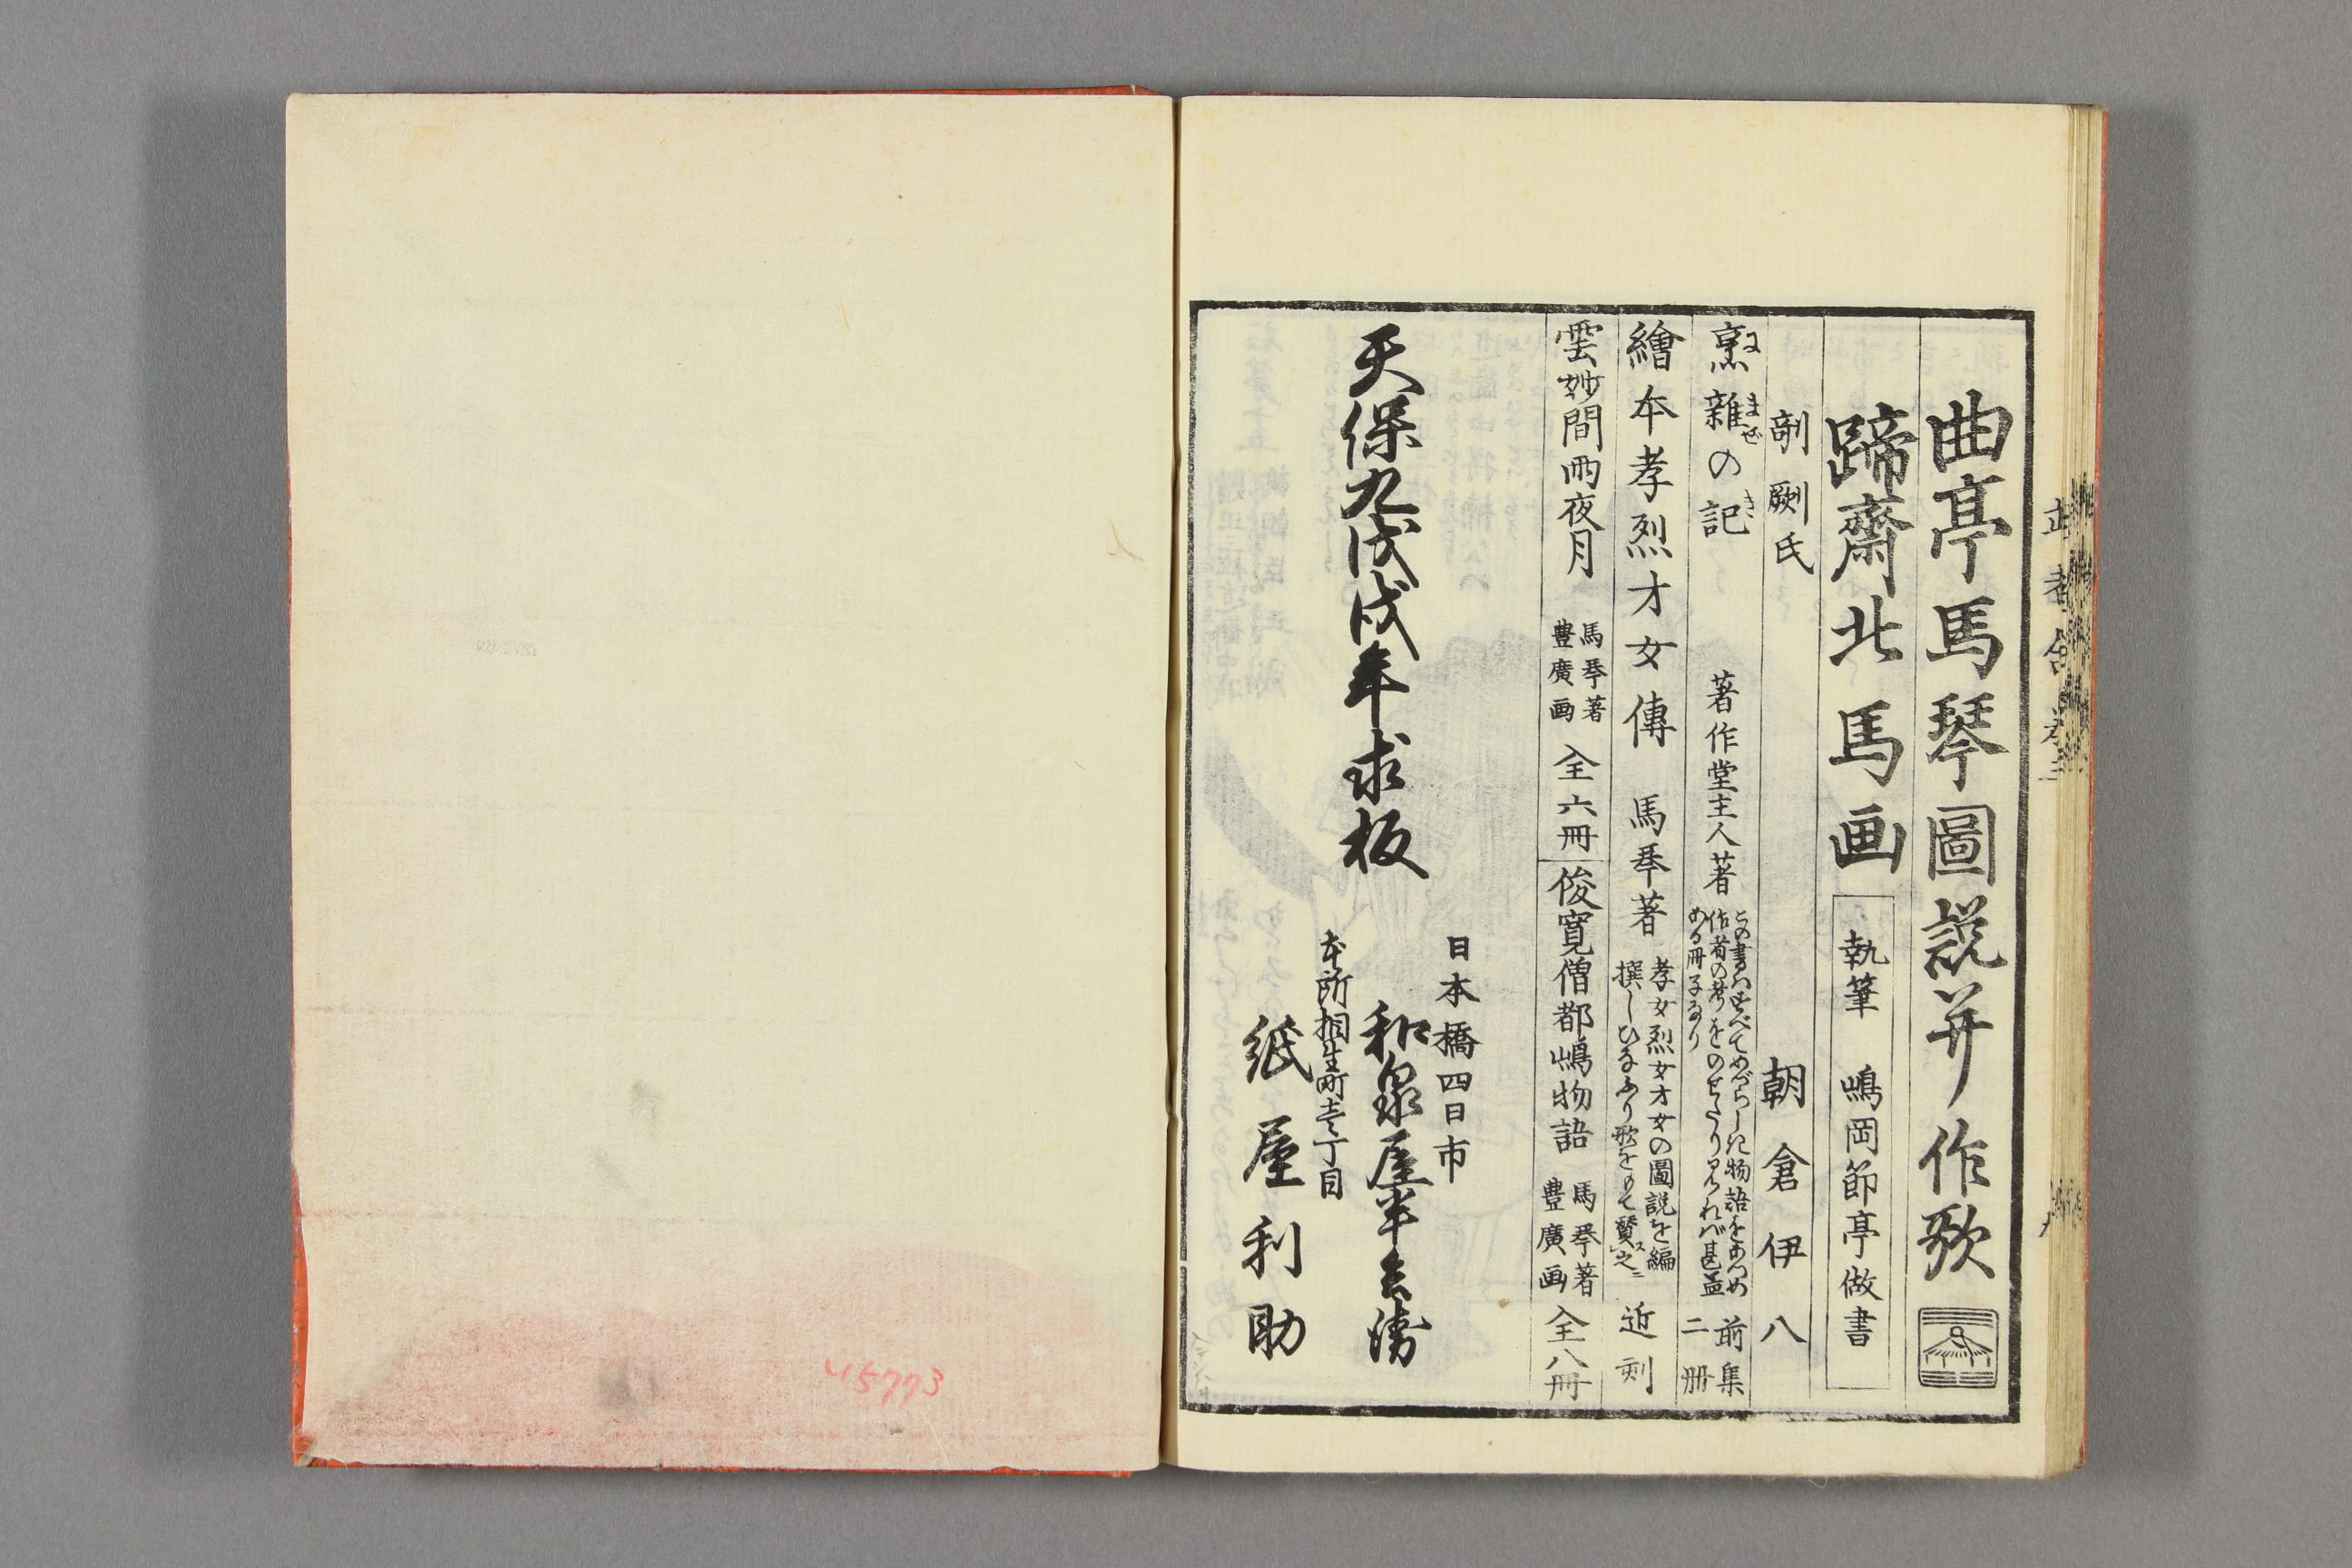 曲亭馬琴圖説并作歌
蹄齋北馬画
執筆　嶋岡節亭倣書
剞劂氏　朝倉伊八
烹雜の記
にまぜき
著作堂主人著
この書はすべてめづらしき物語をあつめ
作者の考をのせたり見れば甚益
ある冊子なり
前集
二冊
繪本孝烈才女傳　馬琴著
孝女烈女才女の圖説を編
撰しひなぶり歌をもて賛之
近刻
雲妙間雨夜月
馬琴著
豊廣画
全六冊
俊寛僧都嶋物語
馬琴著
豊廣画
全八冊
天保九戊戌年求板
日本橋四日市
和泉屋半兵衛
本所相生町壱丁目
紙屋利助
45773